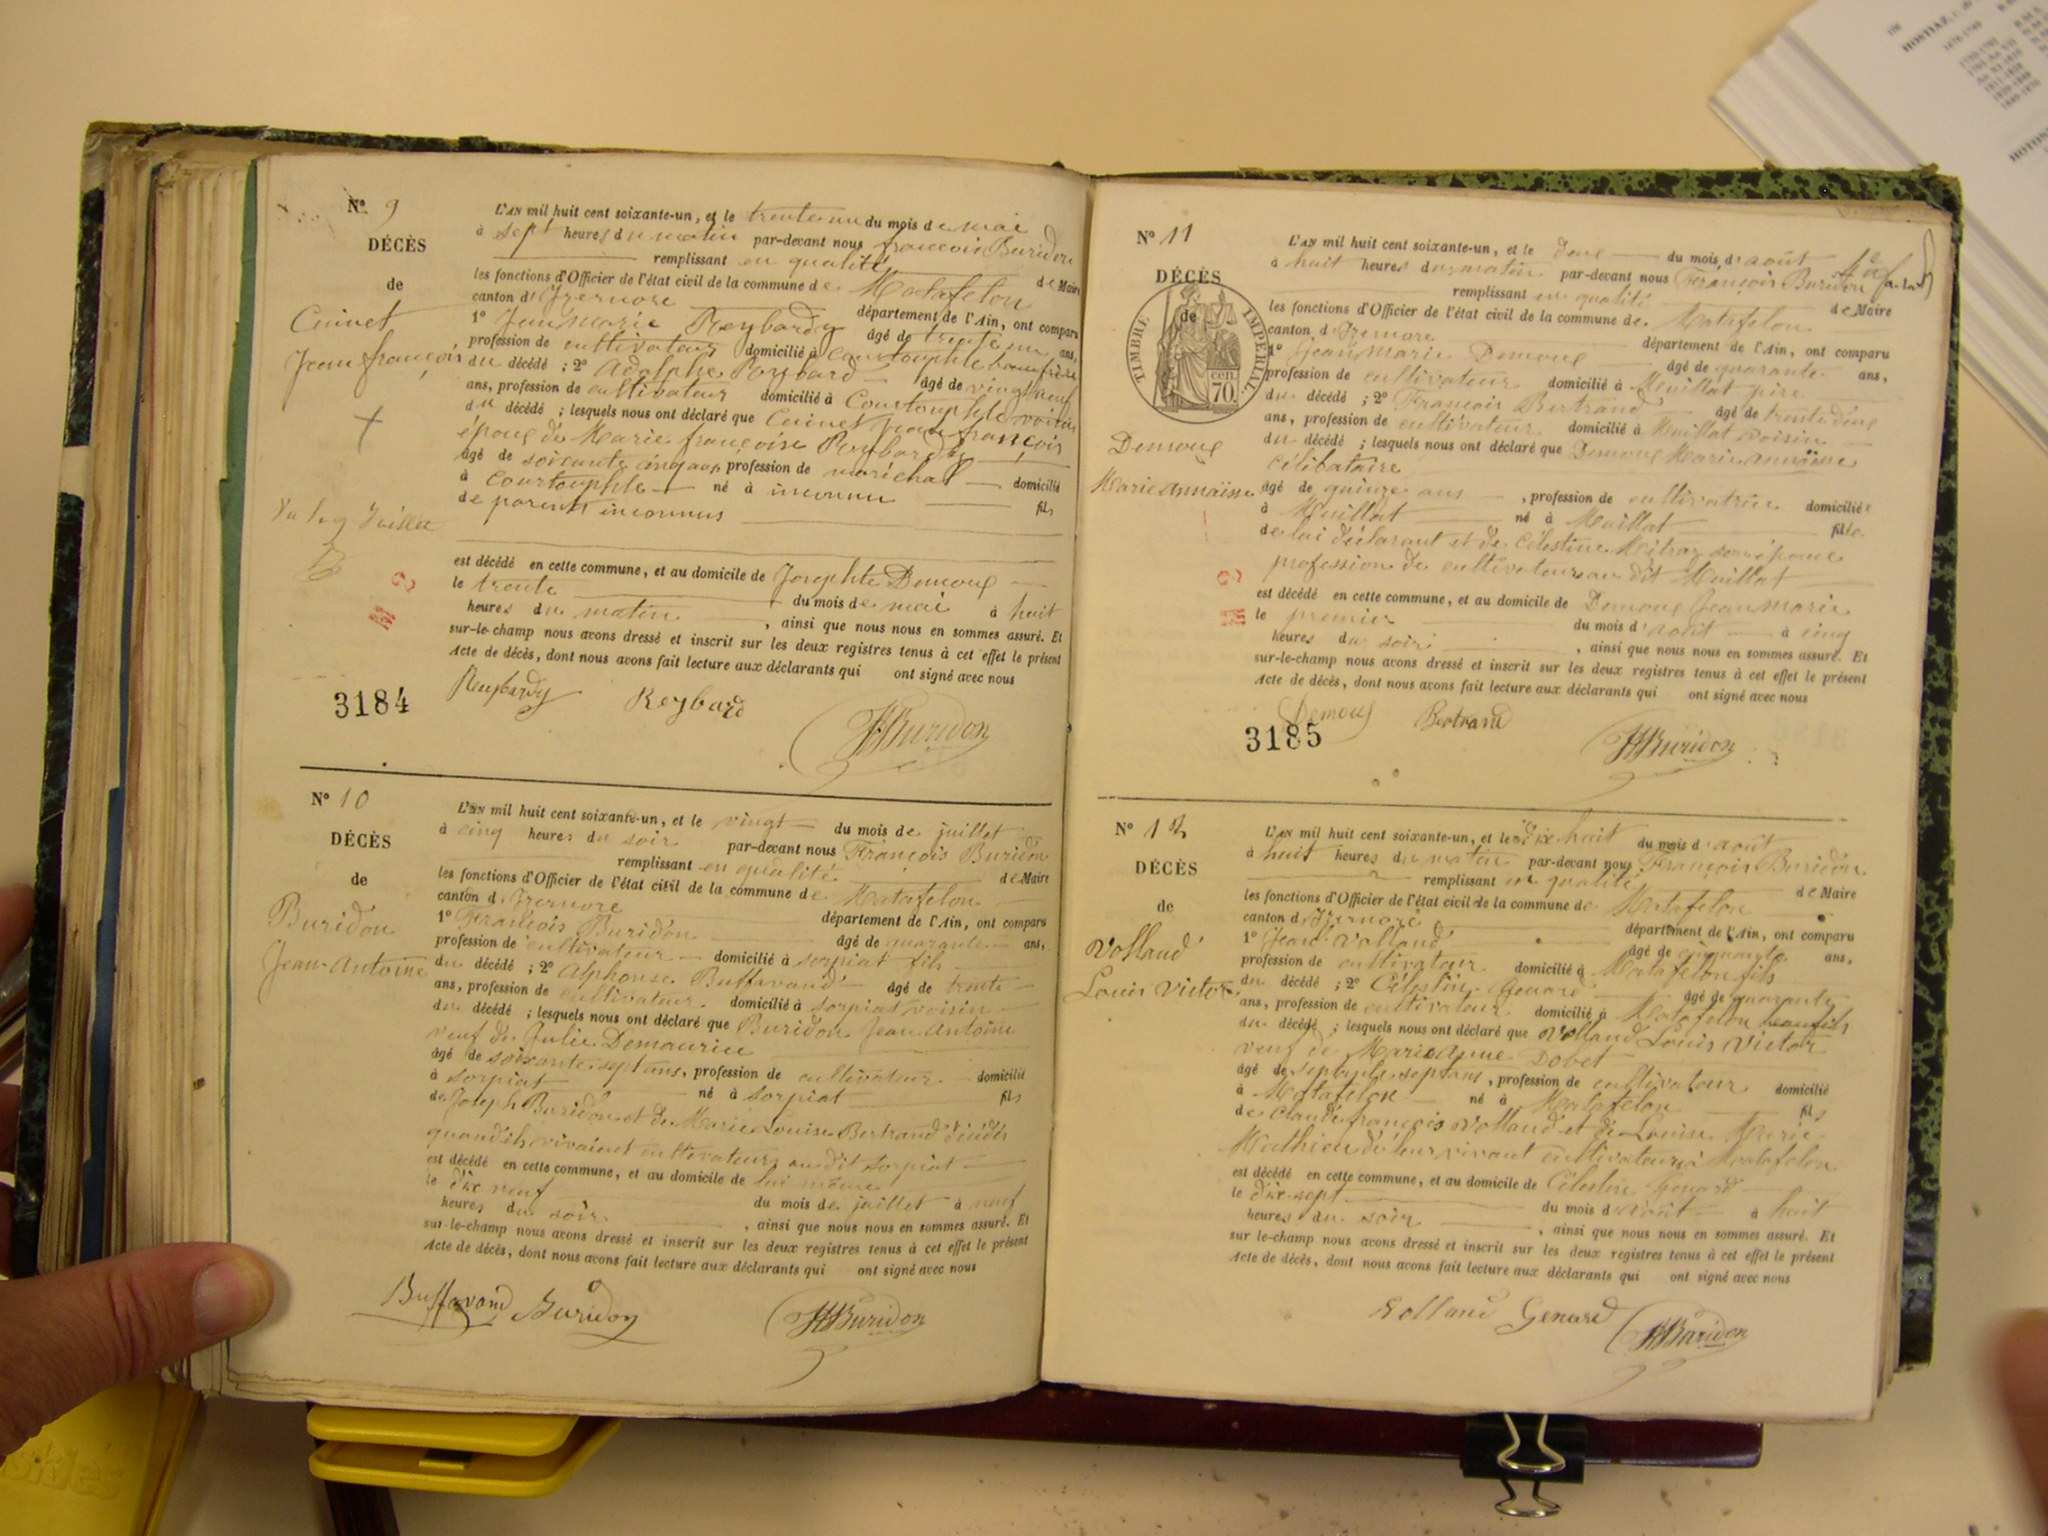 Nº 9
DÉCÈS
de
Cuinet
Jean françois
L'AN mil huit cent soixante-un, et le trente un du mois de mai
à sept heures du matin par-devant nous françois Buridon
remplissant en qualité de Maire
les fonctions d'Officier de l'état civil de la commune de Matafelon
canton d'Izernore département de l'Ain, ont comparu
1º Jean Marie Reybardy âgé de trente un ans,
profession de cultivateur domicilié à Courtouphle beau frère
du décédé ; 2º Adolphe Reybard âgé de vingt neuf
ans, profession de cultivateur domicilié à Courtouphle voisin
du décédé ; lesquels nous ont déclaré que Cuinet jean françois
époux de Marie françoise Reybardy
âgé de soixante cinq ans, profession de maréchal domicilié
à Courtouphle né à inconnu fils
de parents inconnus
est décédé en cette commune, et au domicile de Josephte Demoux
le trente du mois de mai à huit
heures du matin, ainsi que nous nous en sommes assuré. Et
sur-le-champ nous avons dressé et inscrit sur les deux registres tenus à cet effet le présent
Acte de décès, dont nous avons fait lecture aux déclarants qui ont signé avec nous
Reybardy Reybard Buridon
3184
Nº 10
DÉCÈS
de
Buridon
Jean-Antoine
L'AN mil huit cent soixante-un, et le vingt du mois de juillet
à cinq heures du soir par-devant nous François Buridon
remplissant en qualité de Maire
les fonctions d'Officier de l'état civil de la commune de Matafelon
canton d'Izernore département de l'Ain, ont comparu
1º François Buridon âgé de quarante ans,
profession de cultivateur domicilié à sorpiat fils
du décédé ; 2º Alphonse Buffavand âgé de trente
ans, profession de cultivateur domicilié à sorpiat voisin
du décédé ; lesquels nous ont déclaré que Buridon Jean Antoine
veuf de Julie Demaurice
âgé de soixante sept ans, profession de cultivateur domicilié
à sorpiat né à sorpiat fils
de Joseph Buridon et de Marie Louise Bertrand décédés
quand ils vivaient cultivateurs au dit sorpiat
est décédé en cette commune, et au domicile de lui même
le dix neuf du mois de juillet à neuf
heures du soir, ainsi que nous nous en sommes assuré. Et
sur-le-champ nous avons dressé et inscrit sur les deux registres tenus à cet effet le présent
Acte de décès, dont nous avons fait lecture aux déclarants qui ont signé avec nous
Buffavand Buridon Buridon
Nº 11
DÉCÈS
de
TIMBRE IMPERIAL
70 cen
Demoux
Marie annaïsse
L'AN mil huit cent soixante-un, et le deux du mois d'août
à huit heures du matin par-devant nous François Buridon
remplissant en qualité de Maire
les fonctions d'Officier de l'état civil de la commune de Matafelon
canton d'Izernore département de l'Ain, ont comparu
1º Jean Marie Demoux âgé de quarante ans,
profession de cultivateur domicilié à Meillat père
du décédé ; 2º François Bertrand âgé de trente deux
ans, profession de cultivateur domicilié à Meillat voisin
du décédé ; lesquels nous ont déclaré que Demoux Marie annaïsse
célibataire
âgé de quinze ans, profession de cultivatrice domicilié
à Meillat né à Meillat fille
de lui déclarant et de Célestine Mitraz son épouse
profession de cultivateurs au dit Meillat
est décédé en cette commune, et au domicile de Demoux Jean Marie
le premier du mois d'août à cinq
heures du soir, ainsi que nous nous en sommes assuré. Et
sur-le-champ nous avons dressé et inscrit sur les deux registres tenus à cet effet le présent
Acte de décès, dont nous avons fait lecture aux déclarants qui ont signé avec nous
Demoux Bertrand Buridon
3185
Nº 12
DÉCÈS
de
Volland
Louis Victor
L'AN mil huit cent soixante-un, et le dix huit du mois d'août
à huit heures du matin par-devant nous François Buridon
remplissant en qualité de Maire
les fonctions d'Officier de l'état civil de la commune de Matafelon
canton d'Izernore département de l'Ain, ont comparu
1º Jean Volland âgé de cinquante ans,
profession de cultivateur domicilié à Matafelon fils
du décédé ; 2º Célestin Genard âgé de quarante
ans, profession de cultivateur domicilié à Matafelon beaufils
du décédé ; lesquels nous ont déclaré que Volland Louis Victor
veuf de Marie Anne Dobet
âgé de septante sept ans, profession de cultivateur domicilié
à Matafelon né à Matafelon fils
de Claude françois Volland et de Louise Marie
Mathieu de leur vivant cultivateurs à Matafelon
est décédé en cette commune, et au domicile de Célestin Genard
le dix sept du mois d'août à huit
heures du soir, ainsi que nous nous en sommes assuré. Et
sur le-champ nous avons dressé et inscrit sur les deux registres tenus à cet effet le présent
Acte de décès, dont nous avons fait lecture aux déclarants qui ont signé avec nous
Volland Genard Buridon